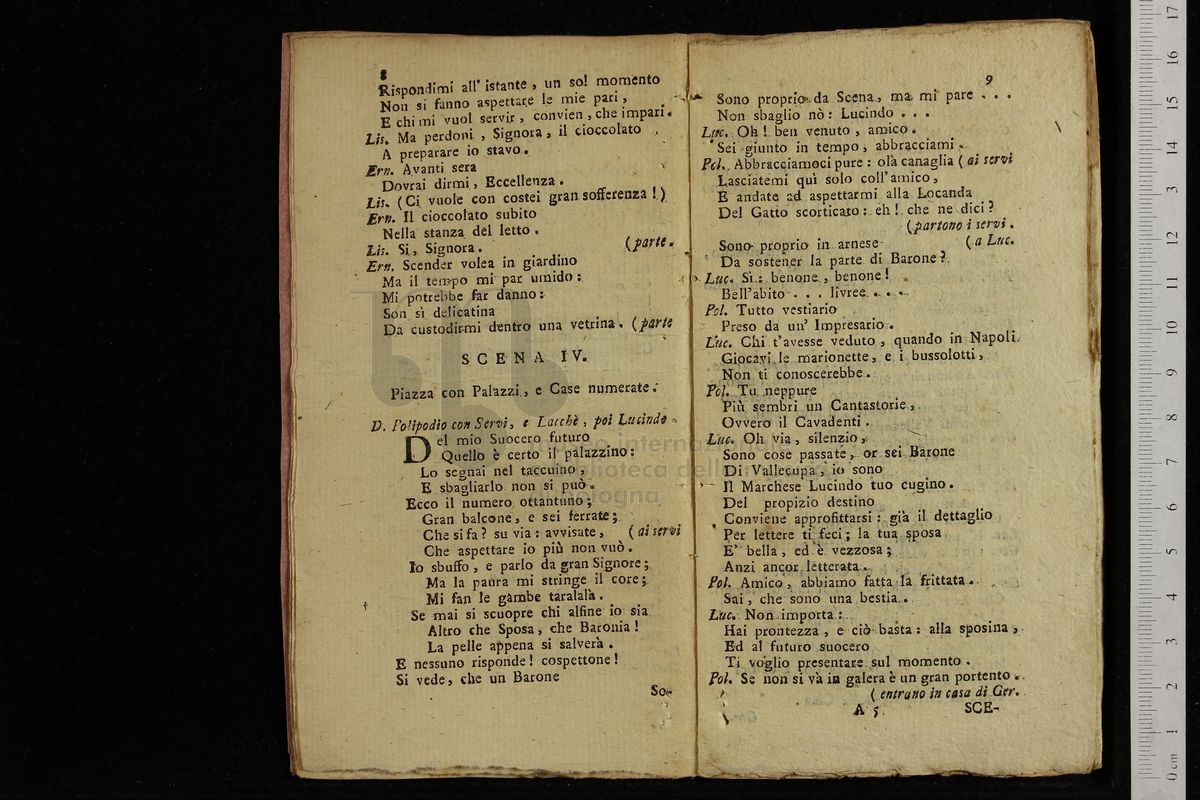 8
Rispondimi all' istante, un sol momento
Non si fanno aspettare le mie pari,
E chi mi vuol servir, convien, che impari.
Lis. Ma perdoni, Signora, il cioccolato
A preparare io stavo.
Ern. Avanti sera
Dovrai dirmi, Eccellenza.
Lis. (Ci vuole con costei gran sofferenza!)
Ern. Il cioccolato subito
Nella stanza del letto.
Lis. Si, Signora. (parte.
Ern. Scender volea in giardino
Ma il tempo mi par umido:
Mi potrebbe far danno:
Son sì delicatina
Da custodirmi dentro una vetrina. (parte
SCENA IV.
Piazza con Palazzi, e Case numerate.
D. Polipodio con Servi, e Lacchè, poi Lucindo
Del mio Suocero futuro
Quello è certo il palazzino:
Lo segnai nel taccuino,
E sbagliarlo non si può.
Ecco il numero ottantuno;
Gran balcone, e sei ferrate;
Che si fa? su via: avvisate, (ai servi
Che aspettare io più non vuò.
Io sbuffo, e parlo da gran Signore;
Ma la paura mi stringe il core;
Mi fan le gambe taralalà.
Se mai si scuopre chi alfine io sia
Altro che Sposa, che Baronia!
La pelle appena si salverà.
E nessuno risponde! cospettone!
Si vede, che un Barone
So-
9
Sono proprio da Scena, ma mi pare . . .
Non sbaglio nò: Lucindo . . .
Luc. Oh! ben venuto, amico.
Sei giunto in tempo, abbracciami.
Pol. Abbracciamoci pure: olà canaglia (ai servi
Lasciatemi quì solo coll'amico,
E andate ad aspettarmi alla Locanda
Del Gatto scorticato: eh! che ne dici?
(partono i servi.
Sono proprio in arnese (a Luc.
Da sostener la parte di Barone?
Luc. Sì: benone, benone!
Bell'abito . . . livree . . .
Pol. Tutto vestiario
Preso da un' Impresario.
Luc. Chi t'avesse veduto, quando in Napoli
Giocavi le marionette, e i bussolotti,
Non ti conoscerebbe.
Pol. Tu neppure
Più sembri un Cantastorie,
Ovvero il Cavadenti.
Luc. Oh via, silenzio,
Sono cose passate, or sei Barone
Di Vallecupa, io sono
Il Marchese Lucindo tuo cugino.
Del propizio destino
Conviene approfittarsi: già il dettaglio
Per lettere ti feci; la tua sposa
E' bella, ed è vezzosa;
Anzi ancor letterata.
Pol. Amico, abbiamo fatta la frittata.
Sai, che sono una bestia.
Luc. Non importa:
Hai prontezza, e ciò basta: alla sposina,
Ed al futuro suocero
Ti voglio presentare sul momento.
Pol. Se non si và in galera è un gran portento.
(entrano in casa di Ger.
A 5 SCE-
0 cm 1 2 3 4 5 6 7 8 9 10 11 12 13 14 15 16 17